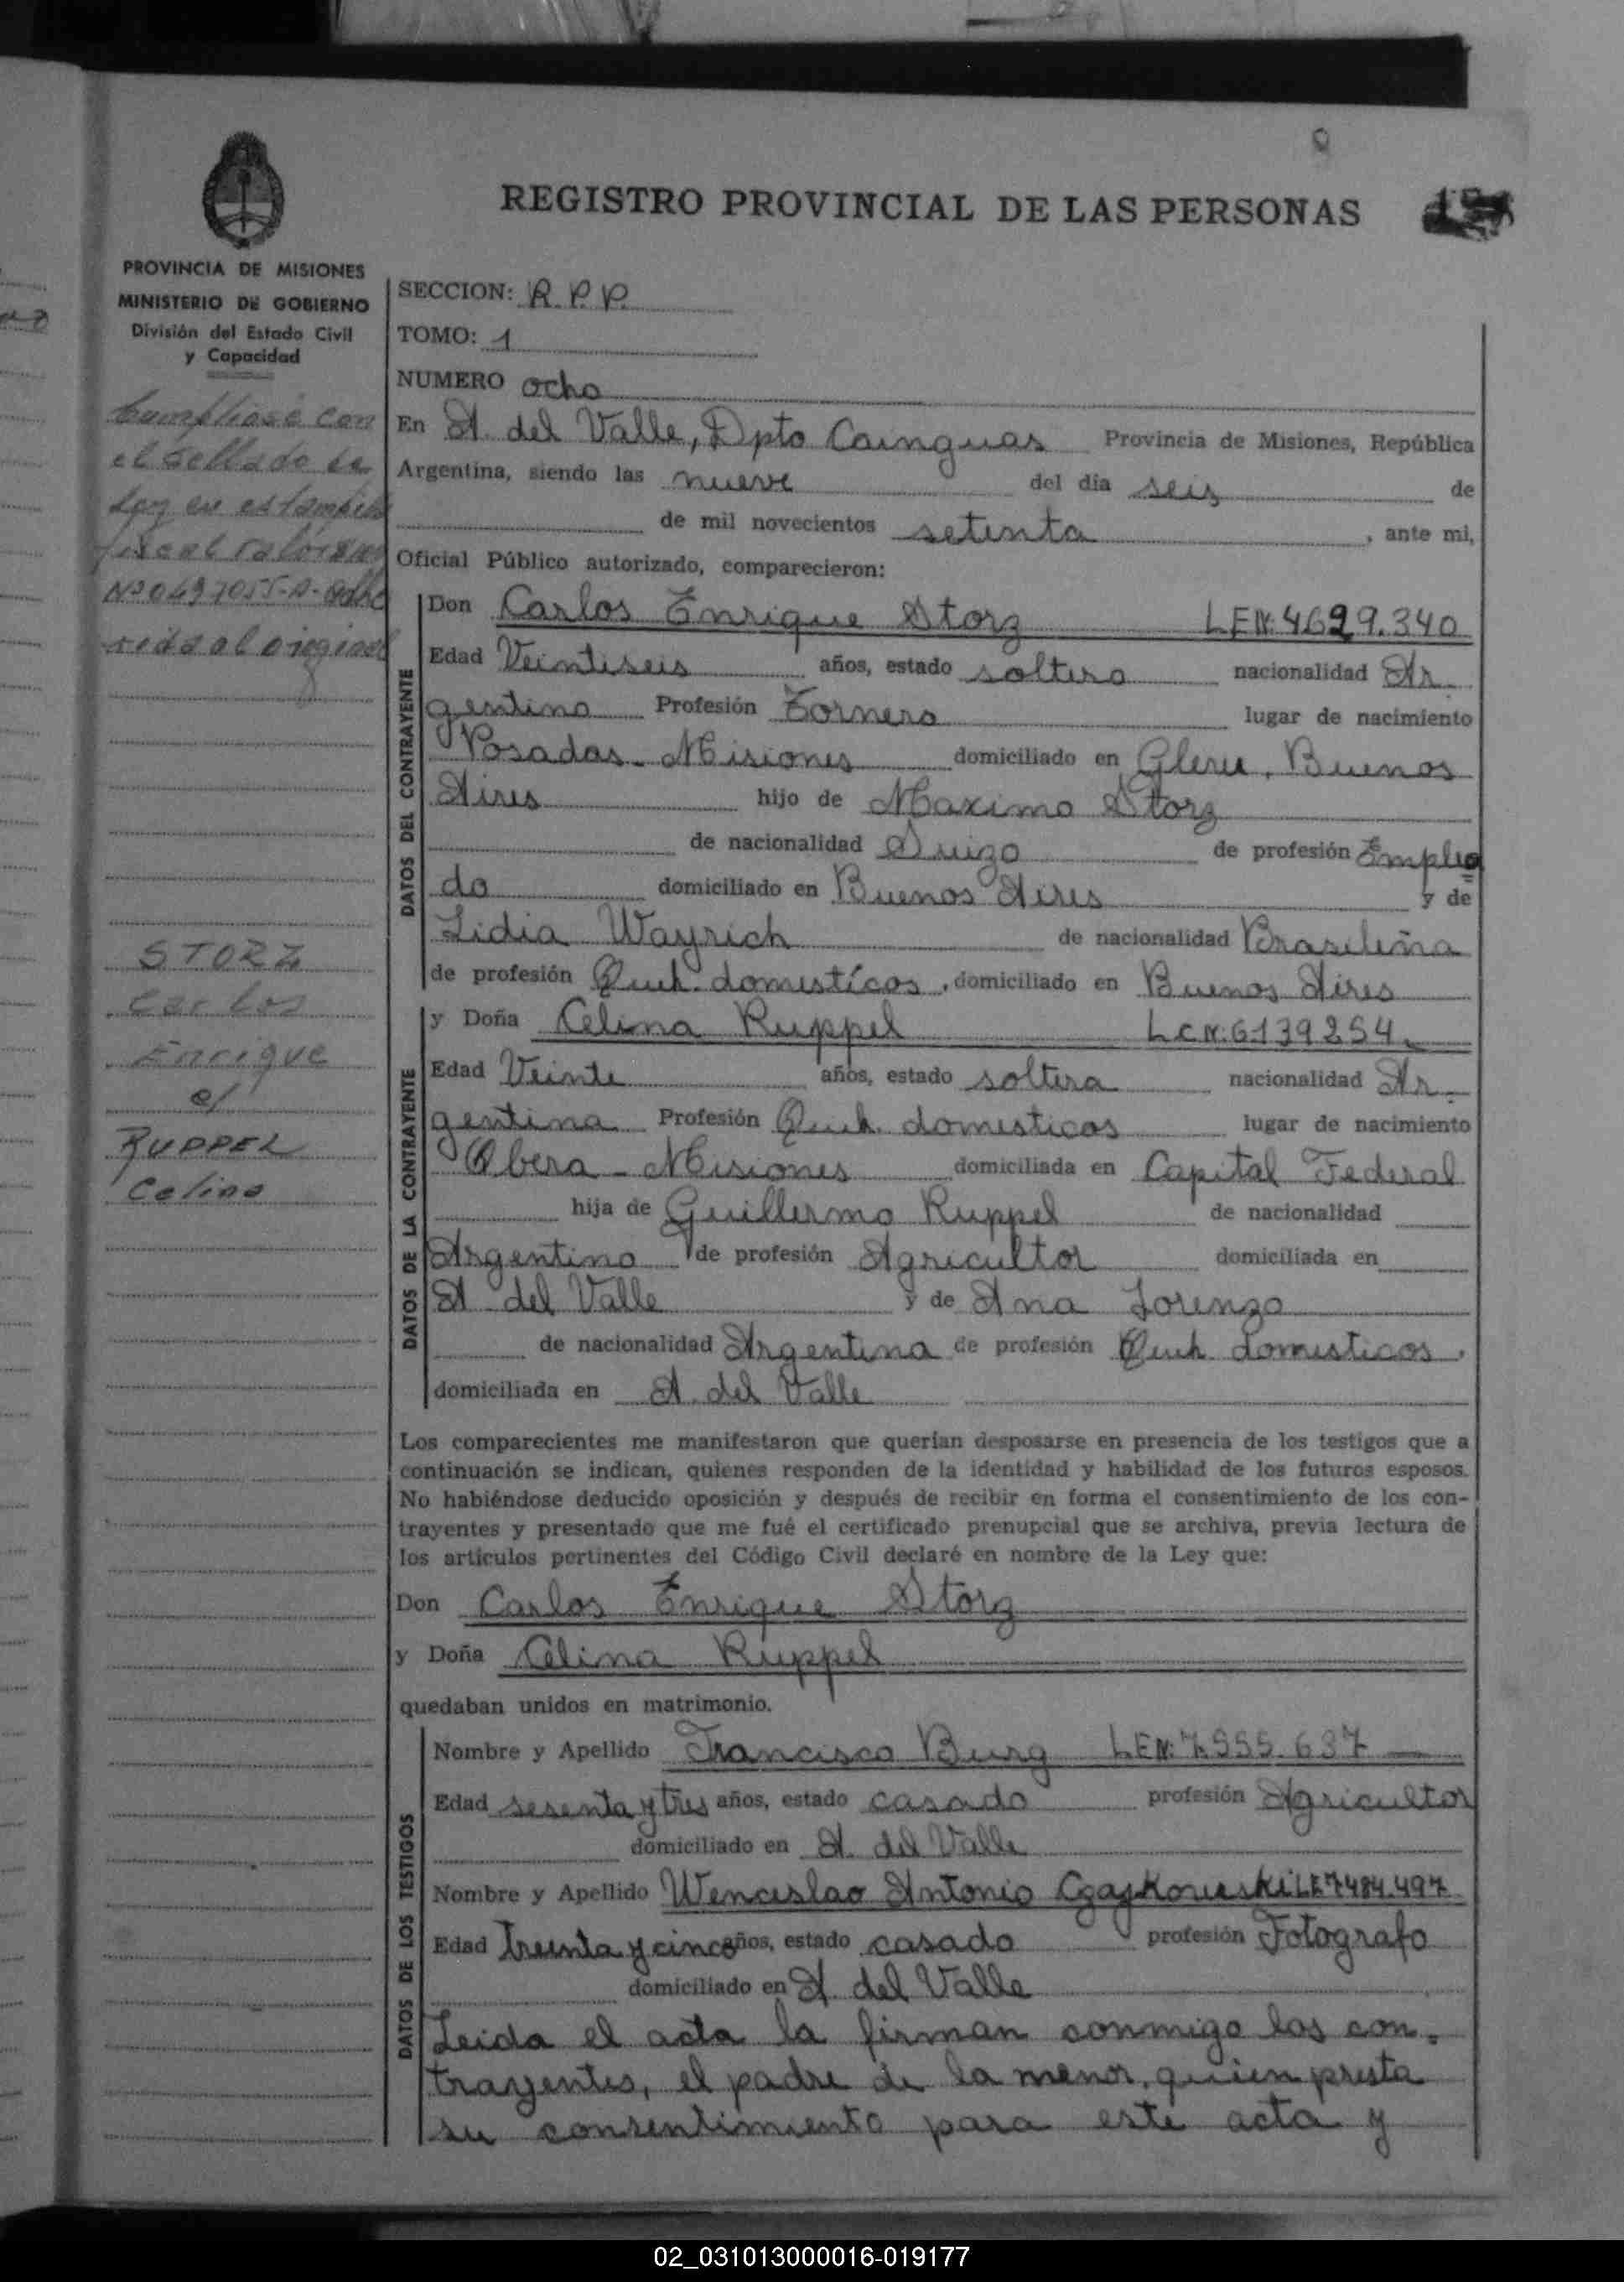 REGISTRO PROVINCIAL DE LAS PERSONAS
PROVINCIA DE MISIONES
MINISTERIO DE GOBIERNO
División del Estado Civil
y Capacidad
Cumpliose con
el sellado de
Ley en estampilla
fiscal valor
Nº 0497055-A-Adhe
rida al original
STORZ
Carlos
Enrique
c/
RUPPEL
Celina
SECCION: R.P.P.
TOMO: 1
NUMERO ocho
En A. del Valle, Dpto Cainguas Provincia de Misiones, República
Argentina, siendo las nueve del día seis de
de mil novecientos setenta, ante mi,
Oficial Público autorizado, comparecieron:
DATOS DEL CONTRAYENTE
Don Carlos Enrique Storz LEN: 4629.340
Edad Veintiseis años, estado soltero nacionalidad Ar-
gentino Profesión Tornero lugar de nacimiento
Posadas - Misiones domiciliado en Glew, Buenos
Aires hijo de Maximo Storz
de nacionalidad Suizo de profesión Emplea
do domiciliado en Buenos Aires y de
Lidia Wayrich de nacionalidad Brasileña
de profesión Queh. domesticos, domiciliado en Buenos Aires
DATOS DE LA CONTRAYENTE
y Doña Celina Ruppel LCN: 6139254
Edad Veinte años, estado soltera nacionalidad Ar-
gentina Profesión Queh. domesticos lugar de nacimiento
Obera - Misiones domiciliada en Capital Federal
hija de Guillermo Ruppel de nacionalidad
Argentino de profesión Agricultor domiciliada en
A. del Valle y de Ana Lorenzo
de nacionalidad Argentina de profesión Queh. domesticos,
domiciliada en A. del Valle
Los comparecientes me manifestaron que querían desposarse en presencia de los testigos que a
continuación se indican, quienes responden de la identidad y habilidad de los futuros esposos.
No habiéndose deducido oposición y después de recibir en forma el consentimiento de los con-
trayentes y presentado que me fué el certificado prenupcial que se archiva, previa lectura de
los artículos pertinentes del Código Civil declaré en nombre de la Ley que:
Don Carlos Enrique Storz
y Doña Celina Ruppel
quedaban unidos en matrimonio.
DATOS DE LOS TESTIGOS
Nombre y Apellido Francisco Burg LEN: 7.555.637
Edad sesenta y tres años, estado casado profesión Agricultor
domiciliado en A. del Valle
Nombre y Apellido Wenceslao Antonio Czajkowski LE 7484.497
Edad treinta y cinco años, estado casado profesión Fotografo
domiciliado en A. del Valle
Leida el acta la firman conmigo los con-
trayentes, el padre de la menor, quien presta
su consentimiento para este acta y
02_031013000016-019177